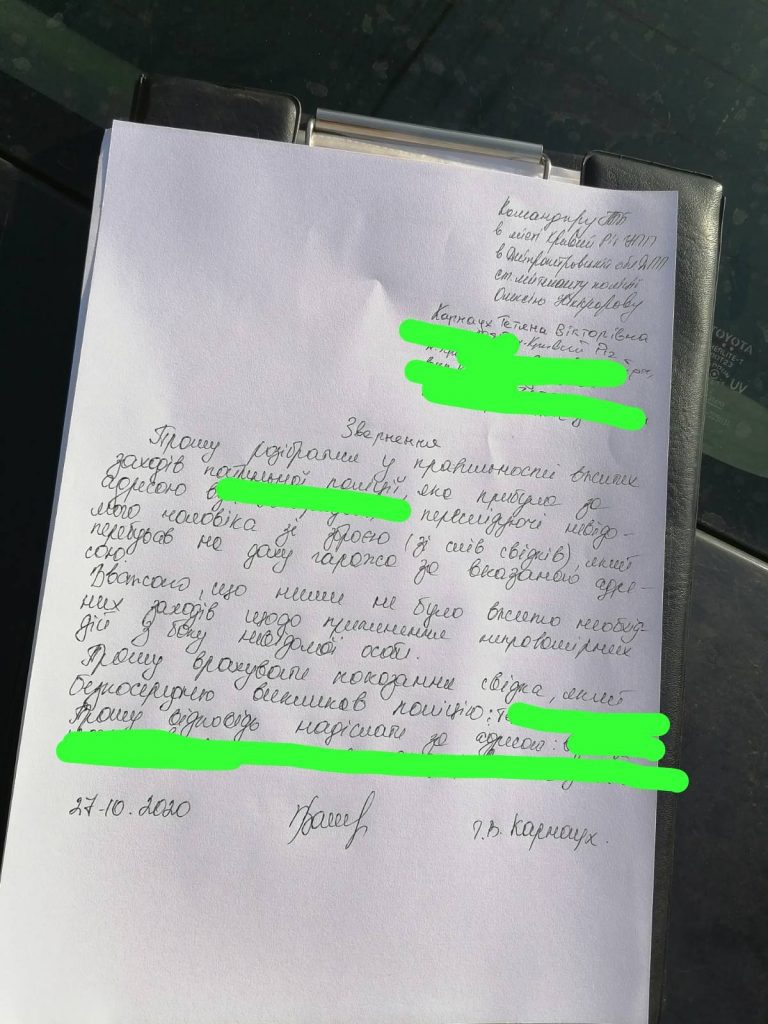 Командиру ТОР
в місті Кривий Ріг УПП
в Дніпропетровській обл ДПП
ст. лейтенанту поліції
Олексію
Карнаух Тетяна Вікторівна
Кривий Ріг
Звернення
Прошу розібратися у правильності вжитих
заходів патрульної поліції, яка прибула за
адресою переслідуючі невідо-
мого чоловіка зі зброєю (зі слів свідків), який
перебував на даху гаража за вказаною адре-
сою.
Вважаю, що ними не було вжито необхід-
них заходів щодо припинення неправомірних
дій з боку невідомої особи.
Прошу врахувати показання свідка, який
безпосередньо викликав поліцію: те
Прошу відповідь надіслати за адресою: в
27.10.2020
Т.В. Карнаух.
TOYOTA
UV